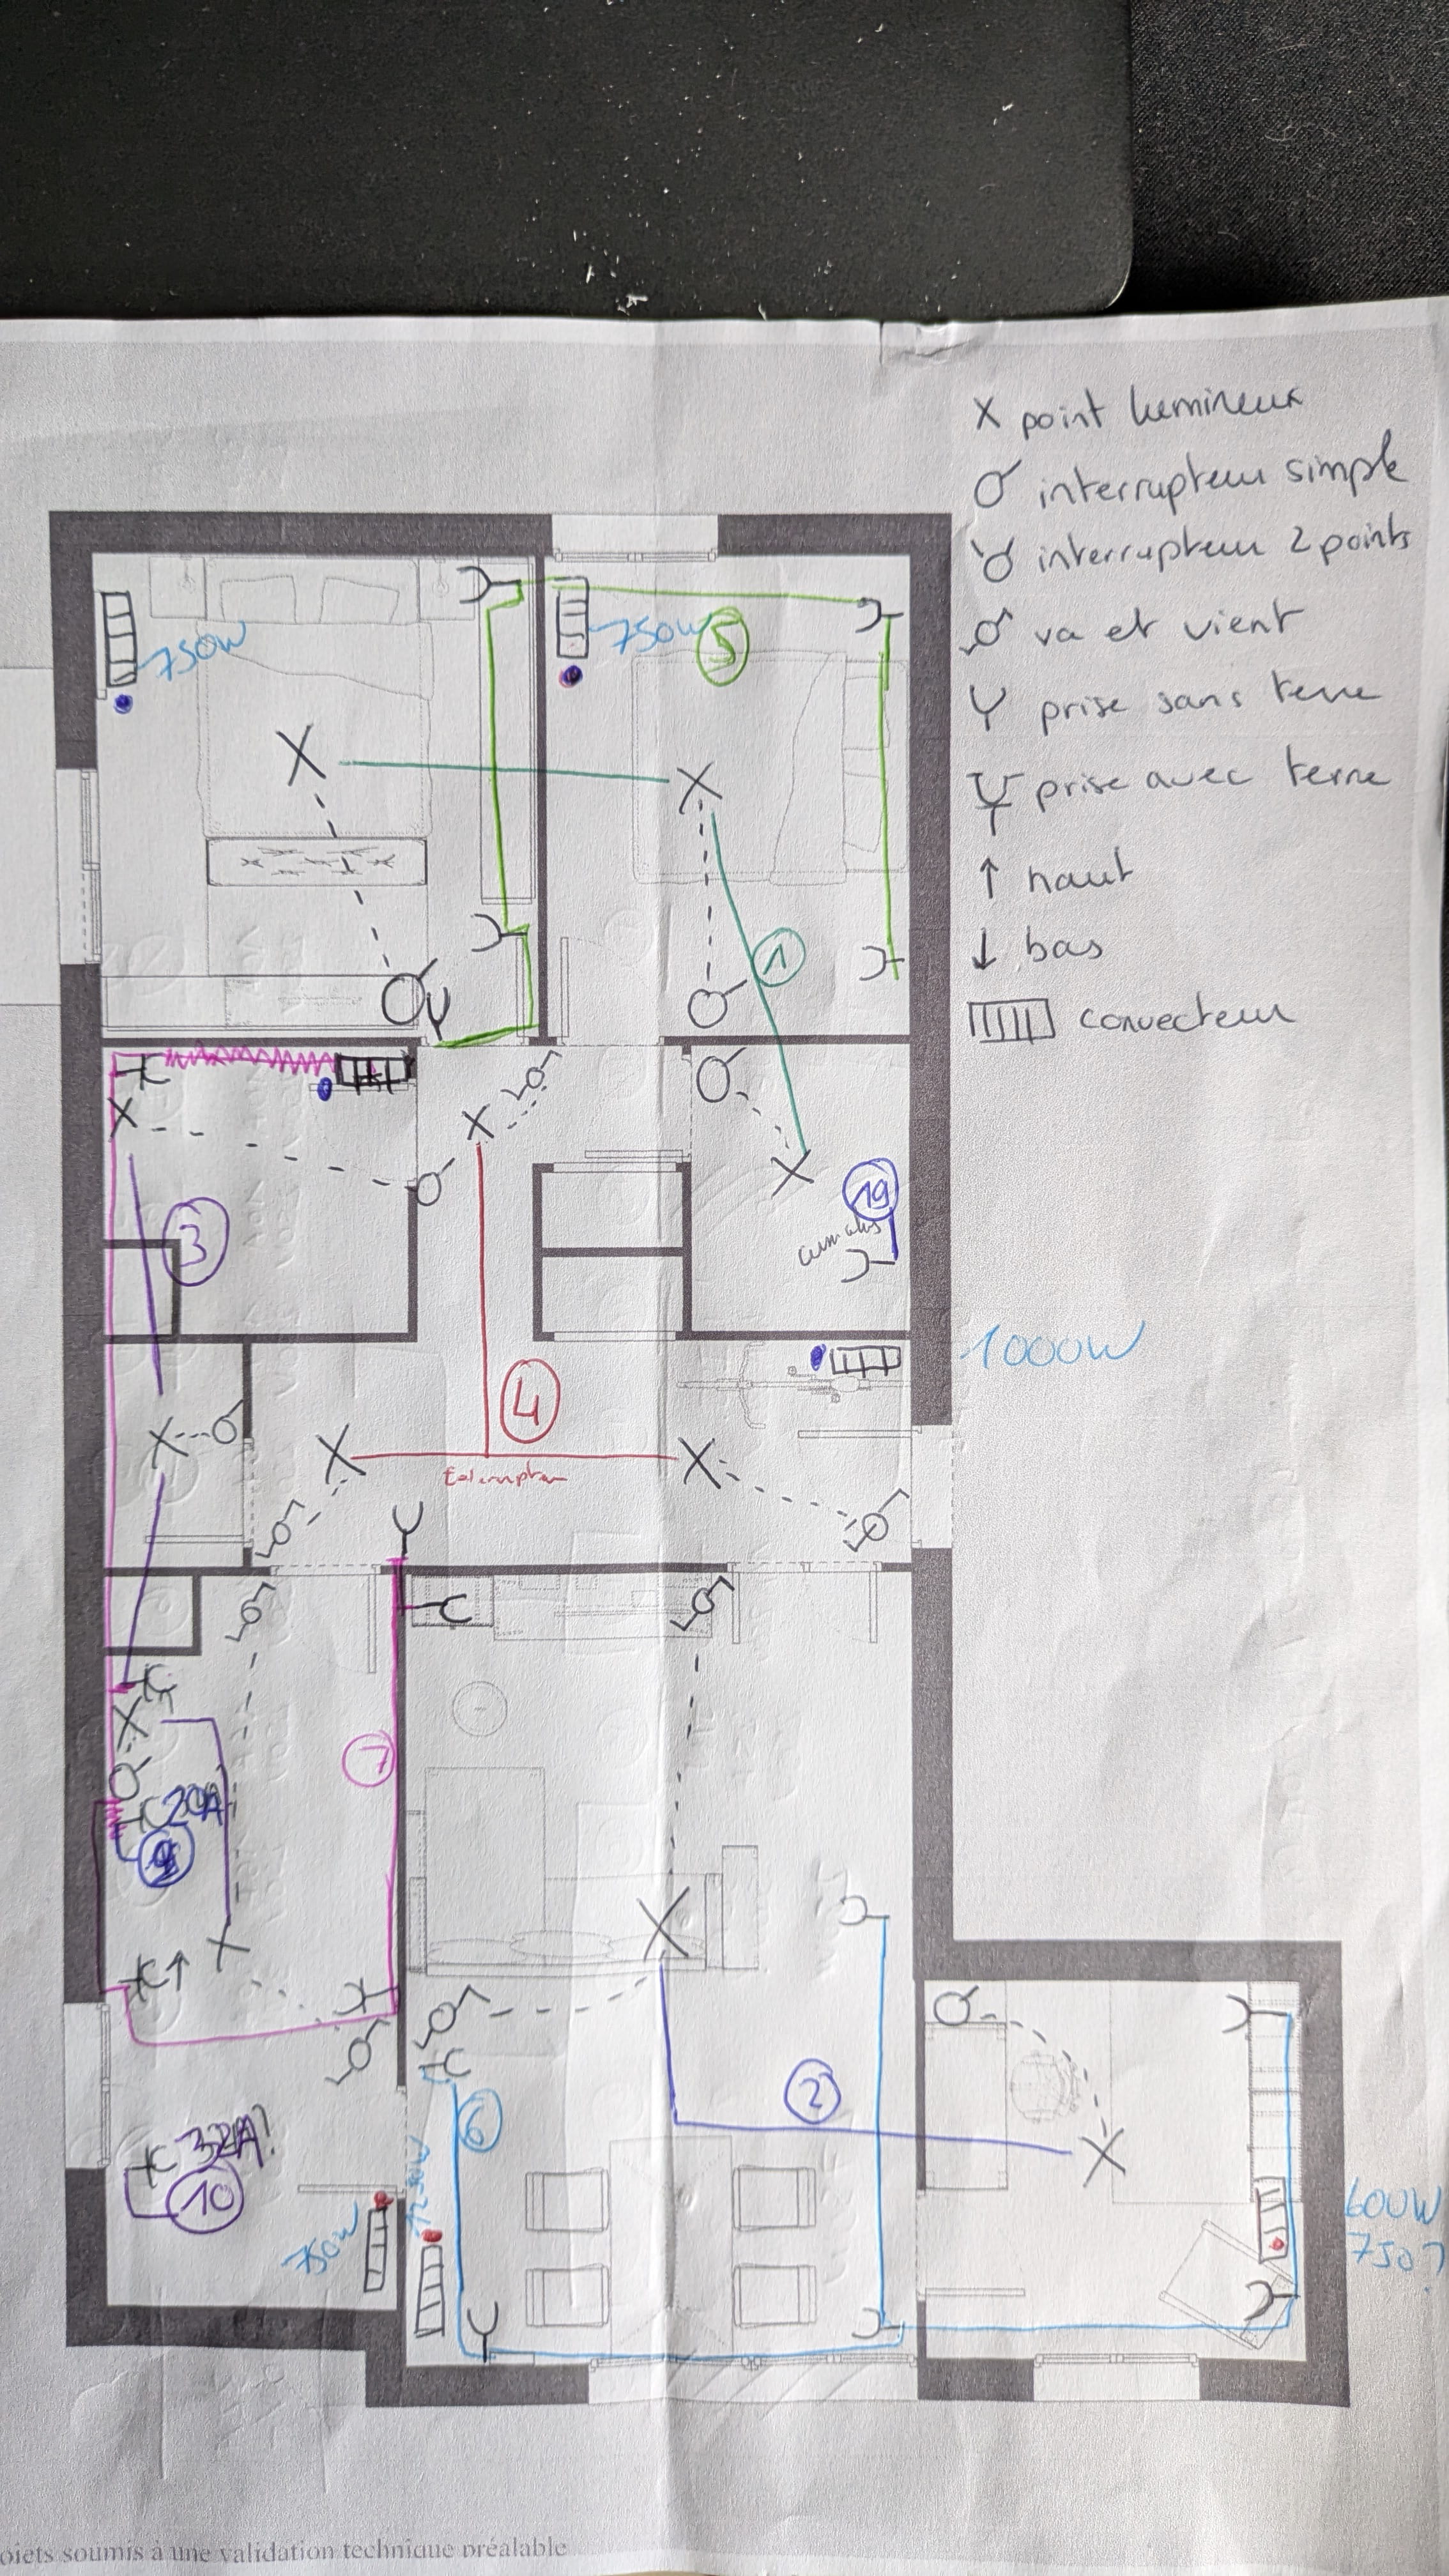 X point lumineux
interrupteur simple
interrupteur 2 points
va et vient
prise sans terre
prise avec terre
↑ haut
↓ bas
convecteur
750W
750W
5
1
3
19
cumulus
1000W
4
7
20A
6
2
32A!
10
750W
600W
750?
ojets soumis à une validation technique préalable